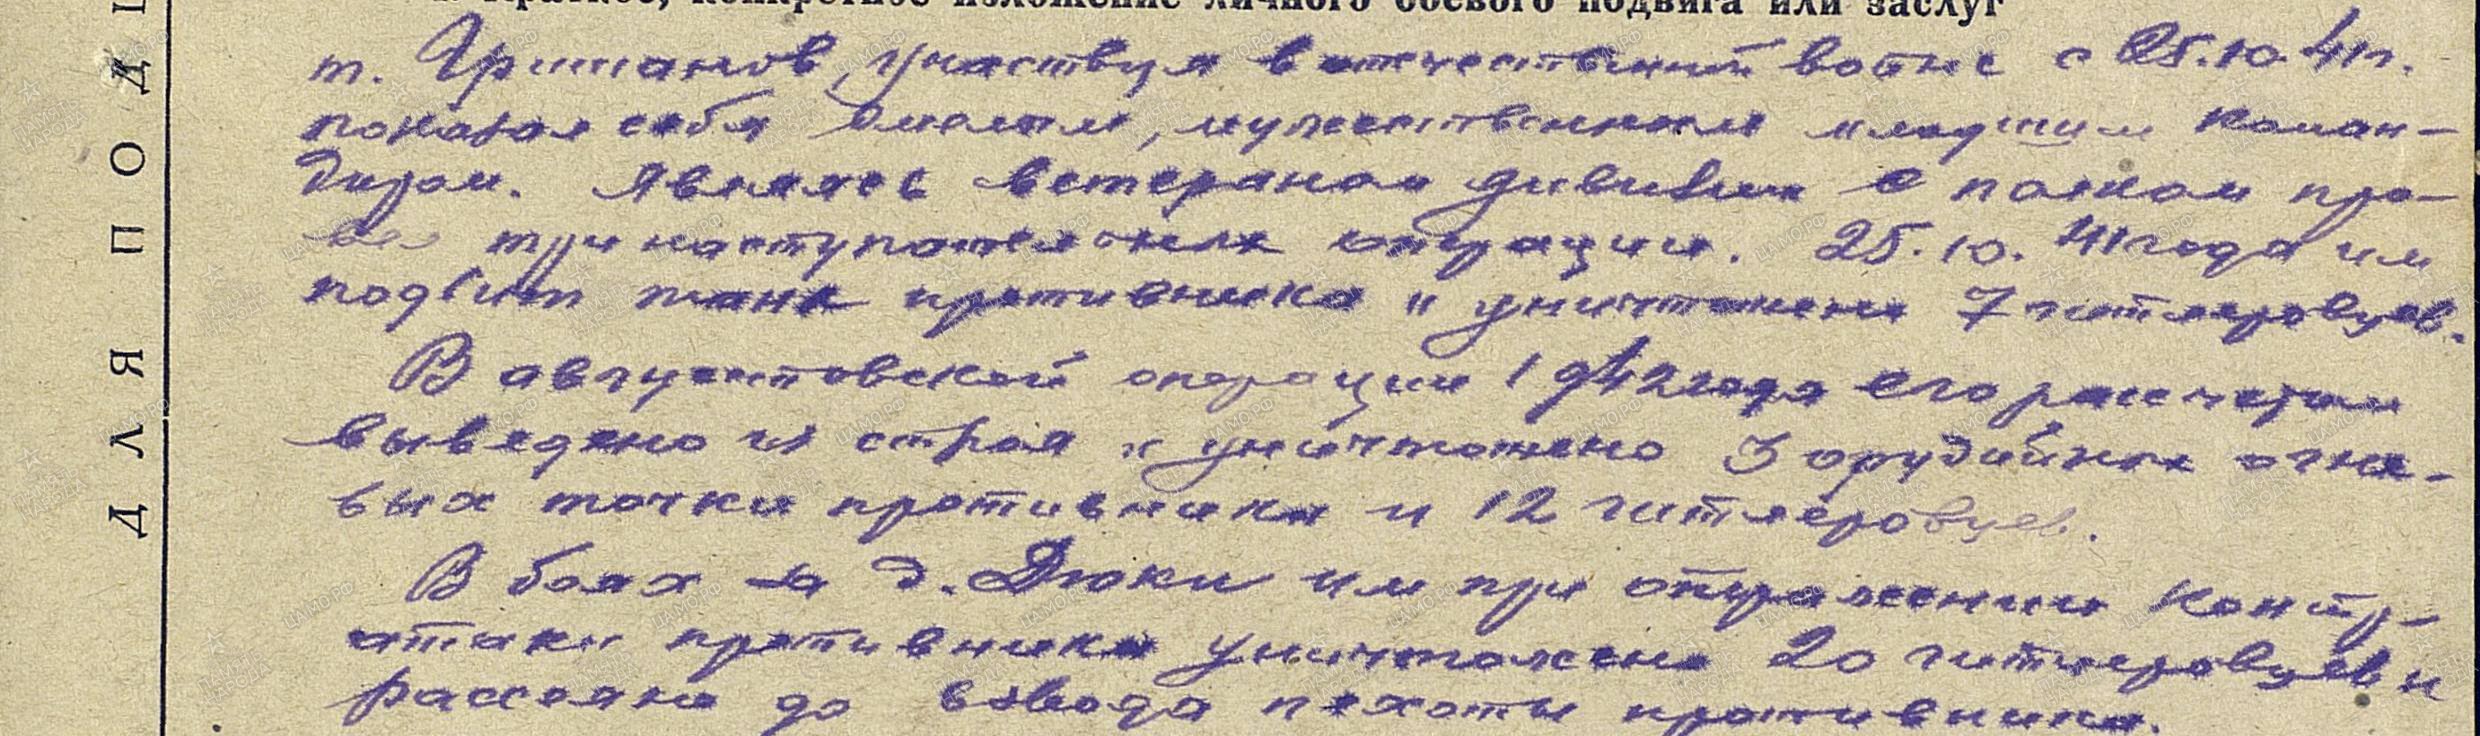 Краткое, конкретное изложение личного боевого подвига или заслуг
т. Гришанов, участвуя в отечественной войне с 25.10.41г.
показал себя смелым, мужественным младшим коман-
диром. Являясь ветераном дивизии с полком про-
вел три наступательных операции. 25.10.41 года им
подбит танк противника и уничтожено 7 гитлеровцев.
В августовской операции 1942 года его расчетом
выведено из строя и уничтожено 3 орудийных огне-
вых точки противника и 12 гитлеровцев.
В боях за д. Дюки им при отражении контр-
атаки противника уничтожено 20 гитлеровцев и
рассеяно до взвода пехоты противника.
ДЛЯ ПОД
ПАМЯТЬ НАРОДА
ЦАМО.РФ